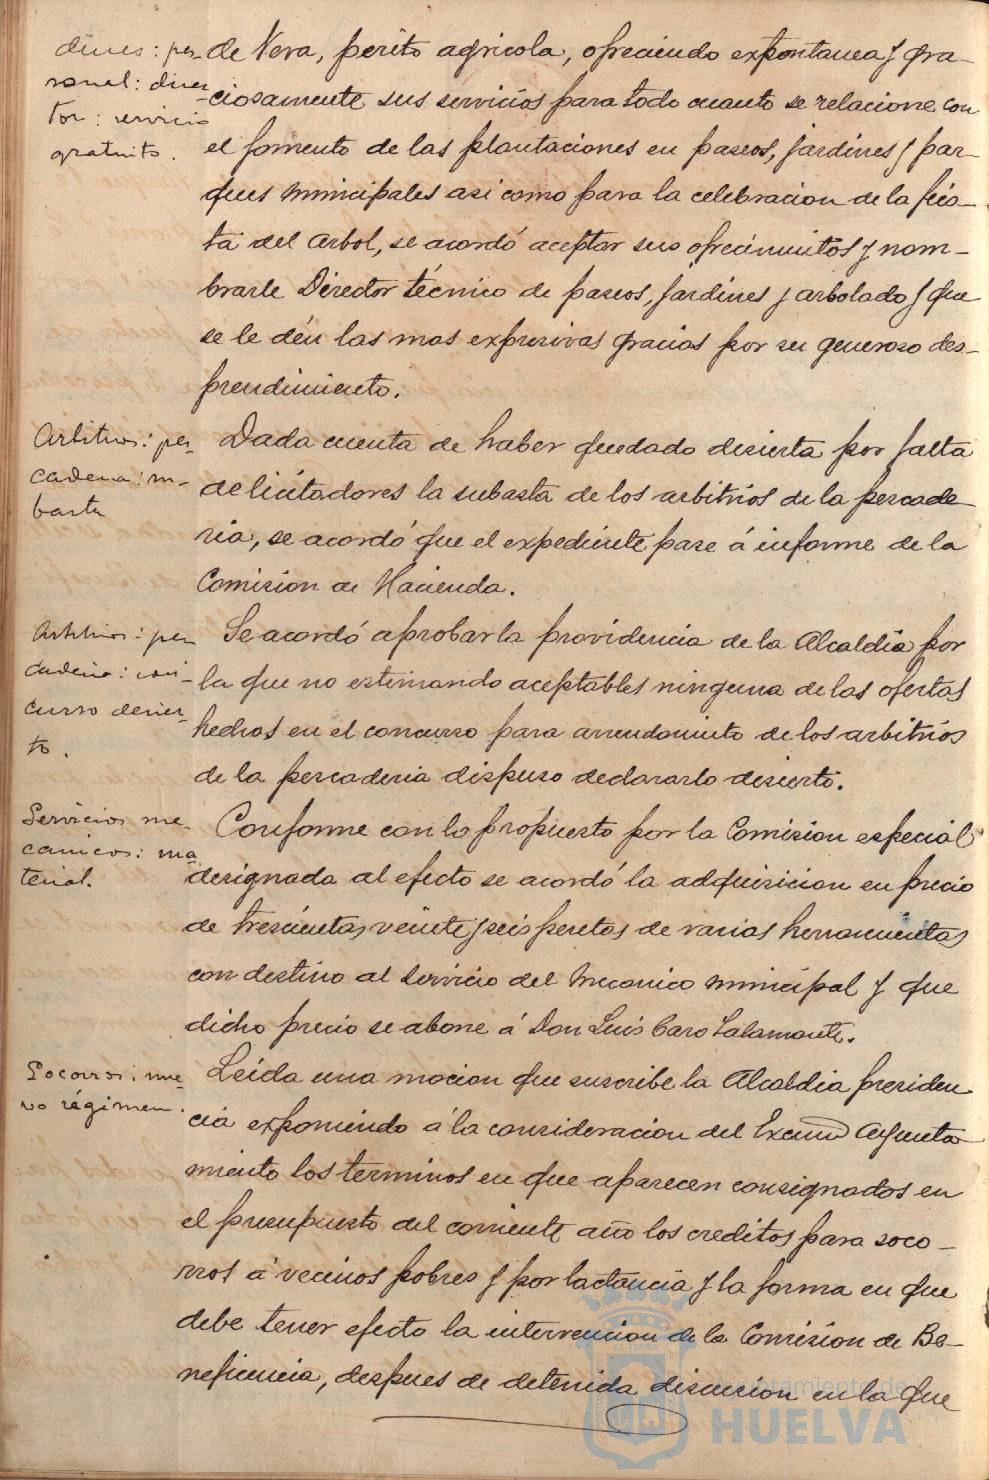 dines: per-
sonal: direc-
tor: servicio
gratuito.
de Vera, perito agricola, ofreciendo expontanea y gra-
ciosamente sus servicios para todo cuanto se relacione con
el fomento de las plantaciones en paseos, jardines y par-
ques municipales asi como para la celebracion de la fies-
ta del Arbol, se acordó aceptar sus ofrecimientos y nom-
brarle Director técnico de paseos, jardines y arbolado y que
se le dén las mas expresivas gracias por su generoso des-
prendimiento.
Arbitrios: pes-
caderia: su-
basta
Dada cuenta de haber quedado desierta por falta
de licitadores la subasta de los arbitrios de la pescade-
ria, se acordó que el expediente pase á informe de la
Comision de Hacienda.
Arbitrios: pes
caderia: con-
curso desier-
to.
Se acordó aprobar la providencia de la Alcaldia por
la que no estimando aceptables ninguna de las ofertas
hechas en el concurso para arrendamiento de los arbitrios
de la pescaderia dispuso declararlo desierto.
Servicios me-
canicos: ma
terial.
Conforme con lo propuesto por la Comision especial
designada al efecto se acordó la adquisicion en precio
de trescientas veinte y seis pesetas de varias herramientas
con destino al servicio del Mecanico municipal y que
dicho precio se abone á Don Luis Caro Salamonte.
Socorros: nue-
vo régimen.
Leida una mocion que suscribe la Alcaldia presiden
cia exponiendo á la consideracion del Excmo Ayunta-
miento los terminos en que aparecen consignados en
el presupuesto del corriente año los creditos para soco-
rros á vecinos pobres y por lactancia y la forma en que
debe tener efecto la intervencion de la Comision de Be-
neficencia, despues de detenida discusion en la que
Ayuntamiento de
HUELVA